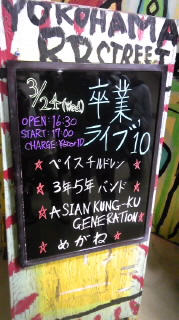 YOKOHAMA
RD STREET
3/24(Wed)
卒業
ライブ'10
OPEN: 16:30
START: 17:00
CHARGE:
★ペイスチルドレン
★3年5年バンド
★ASIAN KUNG-KU
GENERATION★
★めがね★